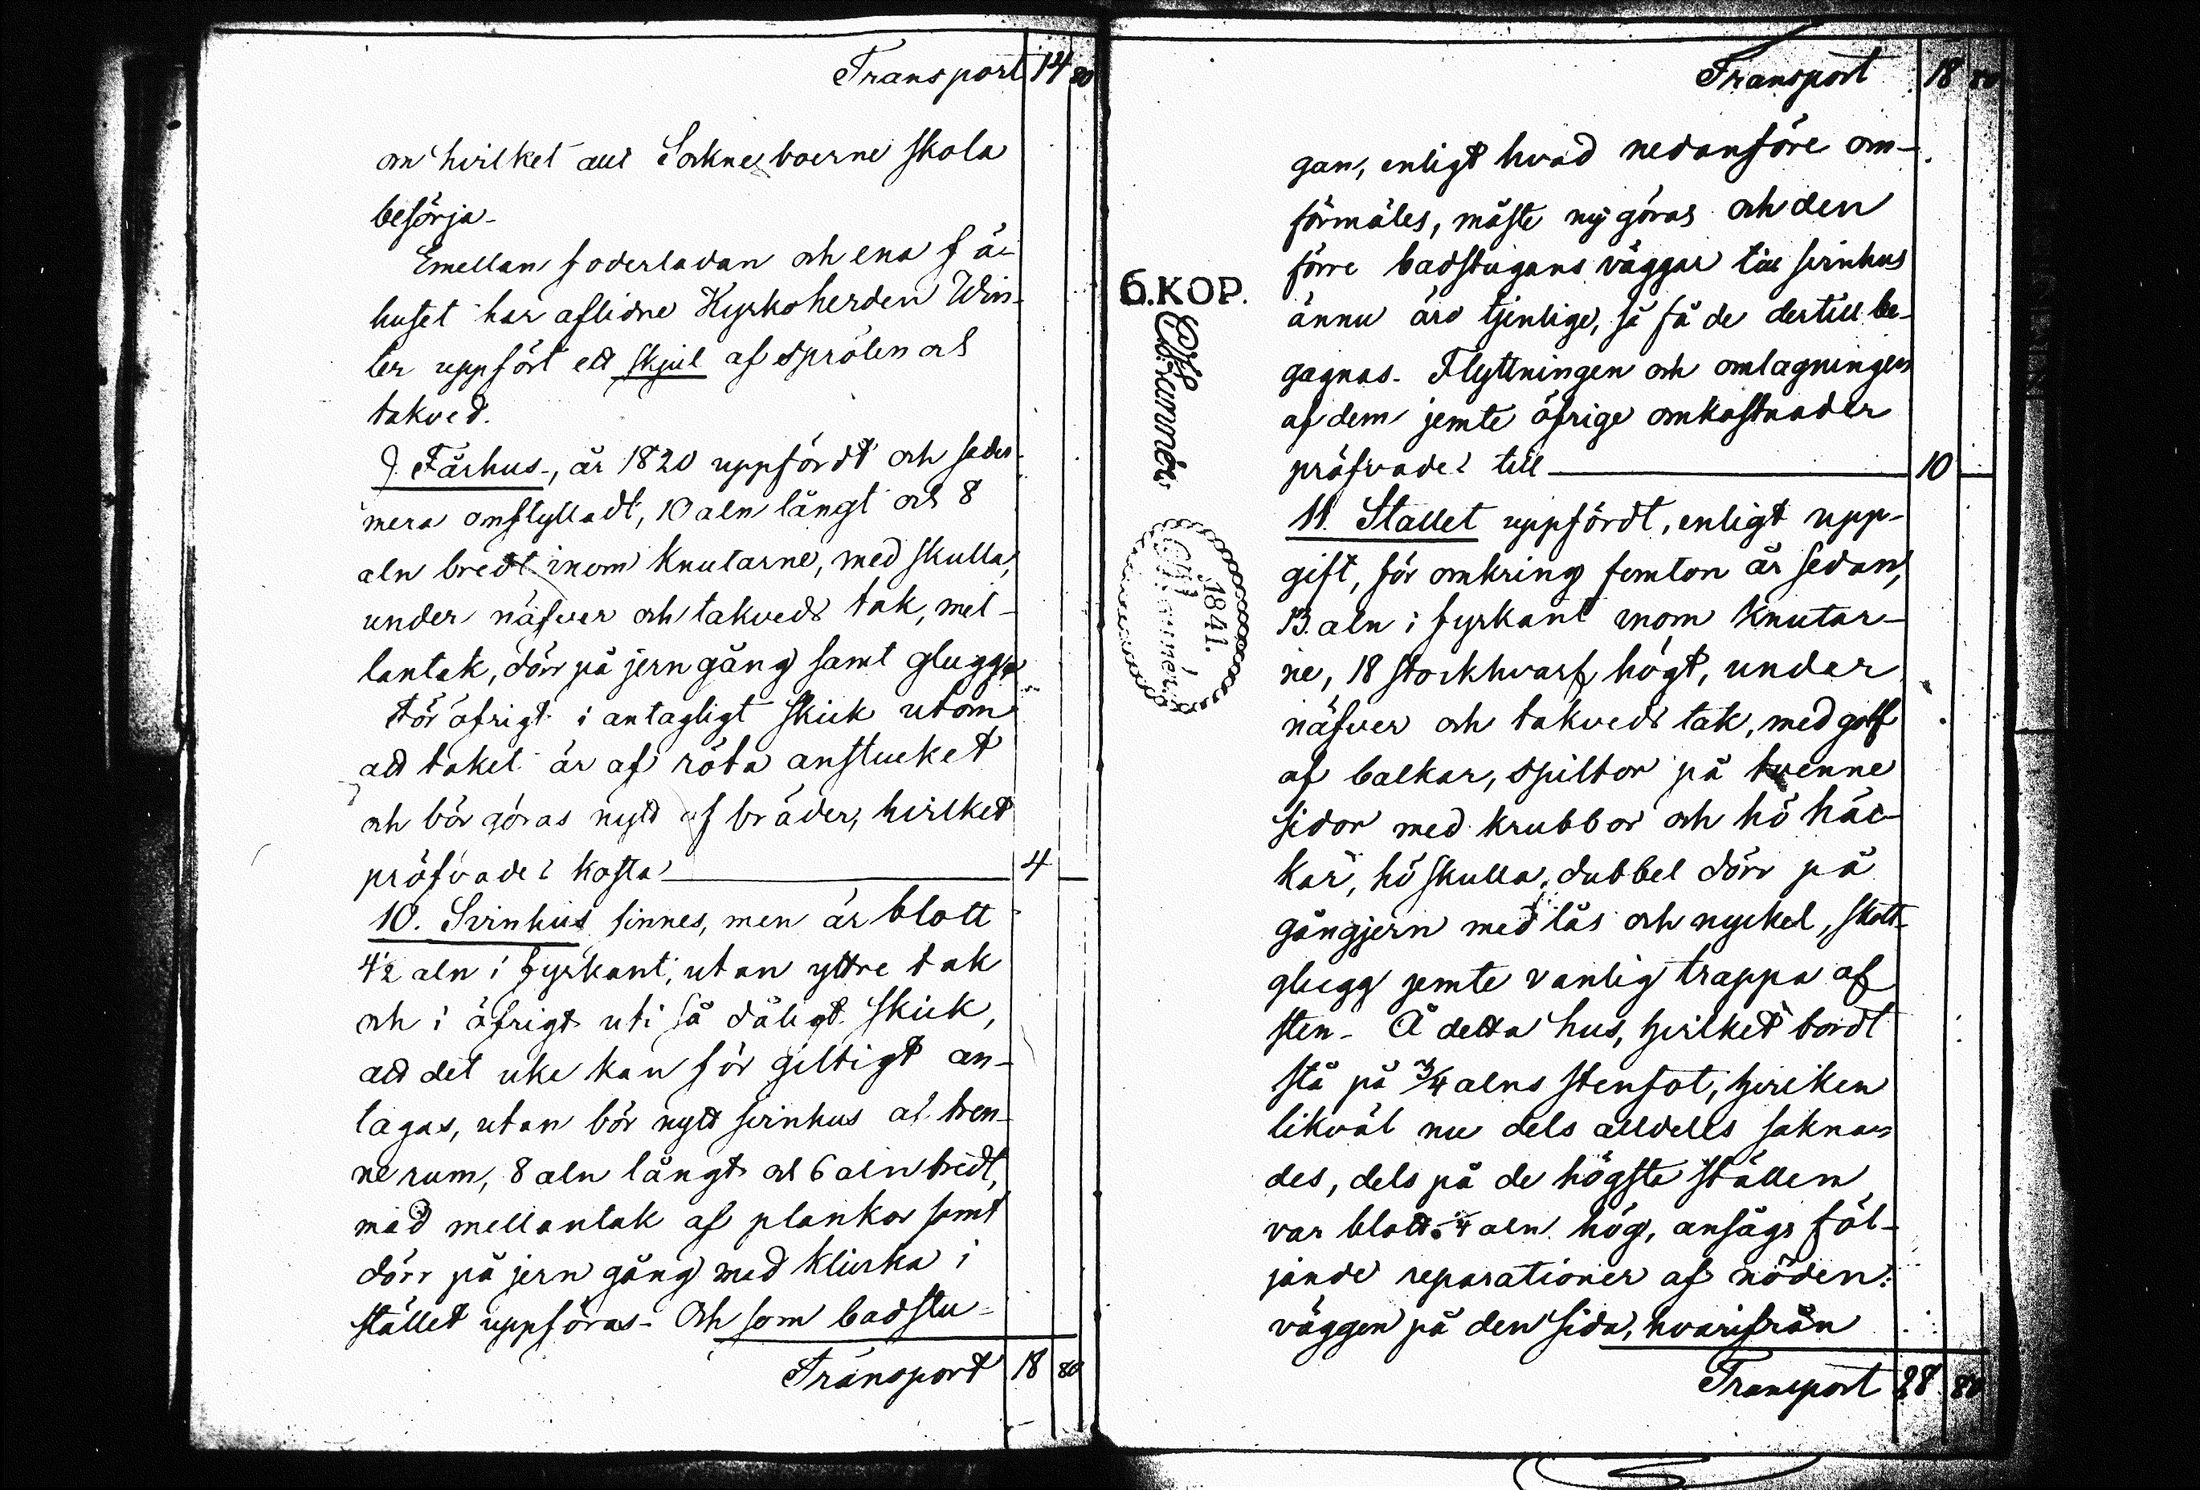 Transport 14 80
om hvilket allt Sockneboerne skola
besörja.
Emellan foderladan och ena fä-
huset har aflidne Kyrkoherden Win-
ter uppfört ett skjul af sprölen och
takved.
9. Fårhus, år 1820 uppfördt och seder
mera omflyttadt, 10 aln långt och 8
aln bredt inom knutarne, med skulla,
under näfver och takveds tak, mel-
lantak, dörr på jerngång samt glugg,
för öfrigt i antagligt skick utom
att taket är af röta anstucket
och bör göras nytt af bräder, hvilket
pröfvades kosta 4
10. Svinhus finnes, men är blott
4½ aln i fyrkant, utan yttre tak
och i öfrigt uti så dåligt skick,
att det icke kan för giltigt an-
tagas, utan bör nytt svinhus af tven-
ne rum, 8 aln långt och 6 aln bredt,
med mellantak af plankor samt
dörr på jerngång med klinka i
stället uppföras. Och som badstu-
Transport 18 80
Transport 18 80
gan, enligt hvad nedanföre om-
förmäles, måste ny göras och den
förre badstugans väggar till svinhus
ännu äro tjenlige, så få de dertill be-
gagnas. Flyttningen och omlagningen
af dem jemte öfrige omkostnader
pröfvades till 10
11. Stallet uppfördt, enligt upp-
gift, för omkring femton år sedan,
13 aln i fyrkant inom knutar-
ne, 18 stockhvarf högt, under
näfver och takveds tak, med golf
af balkar, spiltor på tvenne
sidor med krubbor och hö häc-
kar, hö skulla, dubbel dörr på
gångjern med lås och nyckel, skott-
glugg jemte vanlig trappa af
sten. Å detta hus, hvilket bordt
stå på ¾ alns stenfot, hvilken
likväl nu dels alldeles sakna-
des, dels på de högsta ställen
var blott ¼ aln hög, ansågs föl-
jande reparationer af nöden:
väggen på den sida, hvarifrån
Transport 28 80
6.KOP.
1841.